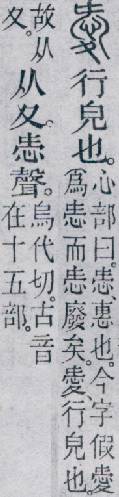 愛行皃也。
心部曰。㤅、惠也。今字假愛
爲㤅而㤅廢矣。愛、行皃也。
故从
夊。
从夊。㤅聲。
烏代切。古音
在十五部。